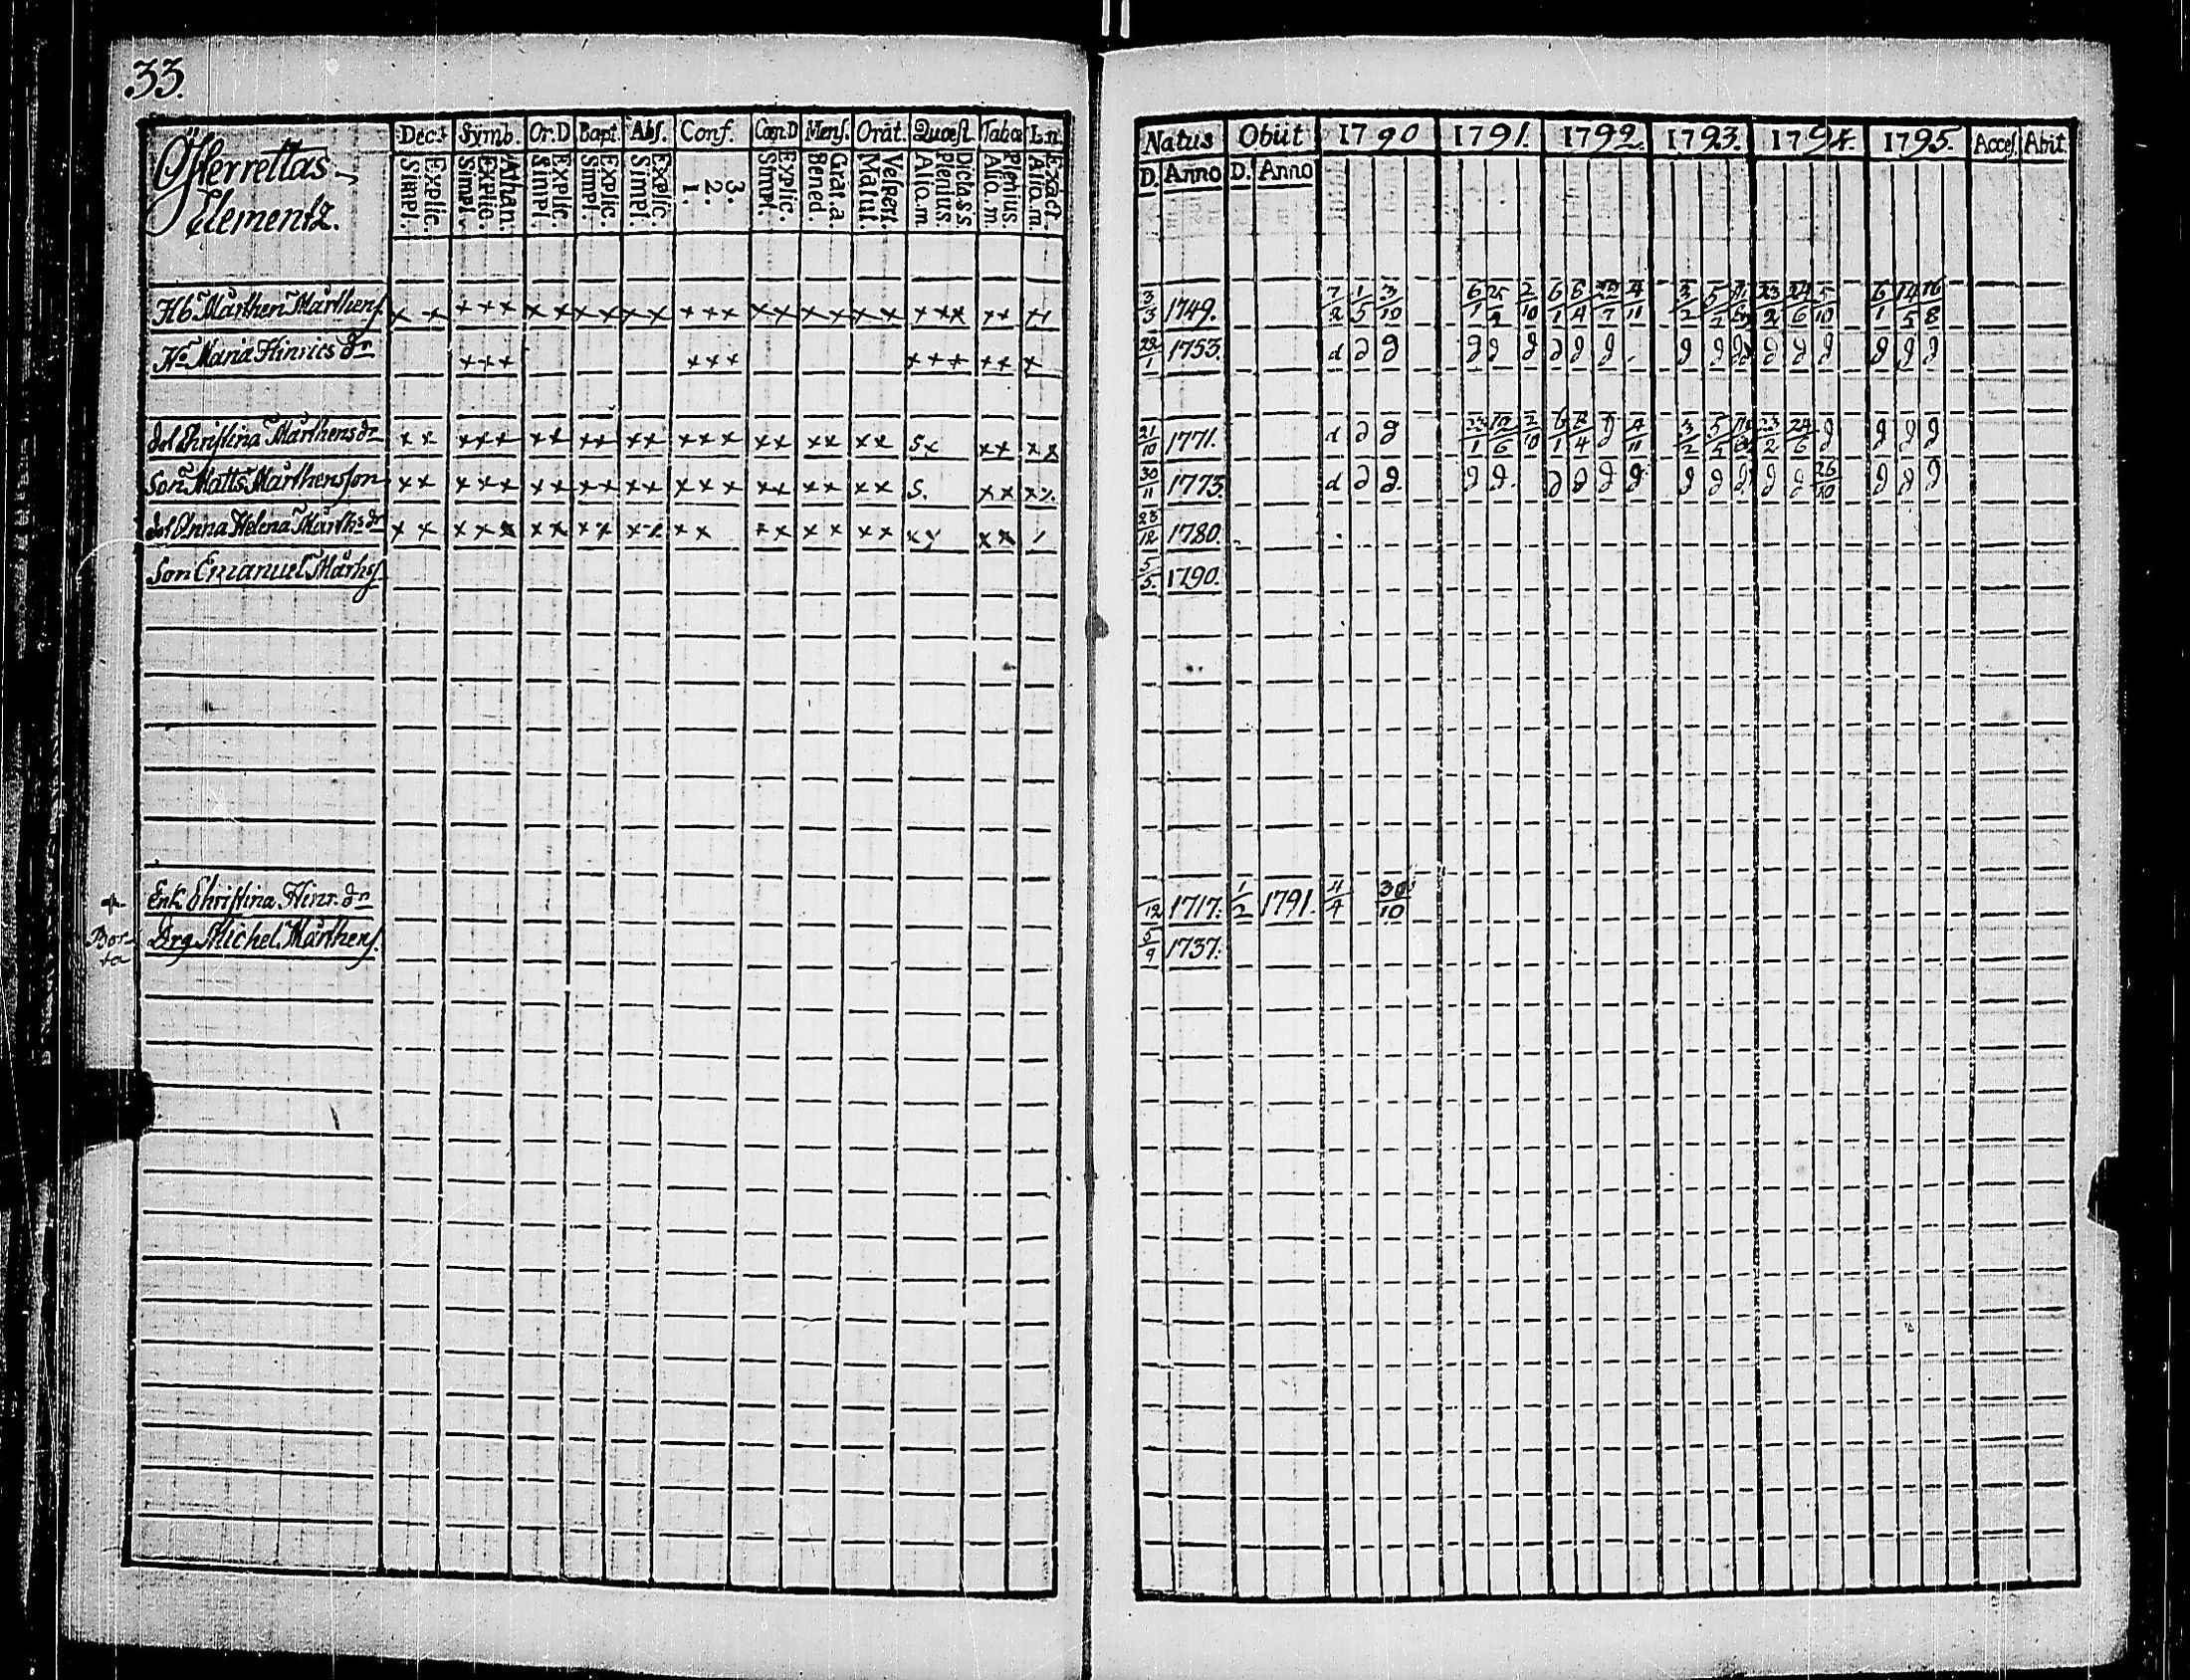 33.
Öfferrettas
Clementz.
Dec. Symb. Or.D Bapt. Abs. Conf. Cœn.D Mens. Orat. Quæst. Tabœ L.n.
Simpl. Explic. Simpl. Explic. Athan. Simpl. Explic. Simpl. Explic. Simpl. Explic. 1. 2. 3. Simpl. Explic. Bened. Grat.a. Matut. Vespert. Aliq.m Plenius. Dicta.s.s. Aliq.m. Plenius. Aliq.m. Exact.
Natus Obiit 1790 1791. 1792. 1793. 1794. 1795. Acces. Abit.
D. Anno D. Anno
Hb Mårthen Mårthens. x x x x x x x x x x x x x x x x x x x x x x x x x x x 3/3 1749. 7/2 1/5 3/10 6/1 2/10 6/1 8/4 3/2 5/5 23/2 24/6 5/10 6/1 14/5 16/8
Hu Maria Hinrics dr x x x x x x x x x x x x 1753. d d g g g g g g g g g g g g g g g g
dot Christina Mårthens dr x x x x x x x x x x x x x x x x x x x x S x x x x x 21/10 1771. d d g 23/1 2/10 6/1 8/4 g 3/2 5/5 23/2 24/6 g g g g
Son Matts Mårthensson x x x x x x x x x x x x x x x x x x x x S. x x x x 30/11 1773. d d g. g g. g g g g g g g g g 26/10 g g g
dot Anna Helena Mårth:s dr x x x x x x x x x x x x x x x x x x x x x x x 23/12 1780.
Son Emanuel Mårths. 5/5. 1790.
+ Enk. Christina Hinr. dr /12 1717: 1/2 1791. 4/4 30/10
Bor-
ta
Drg. Michel Mårthens. 5/9 1737: